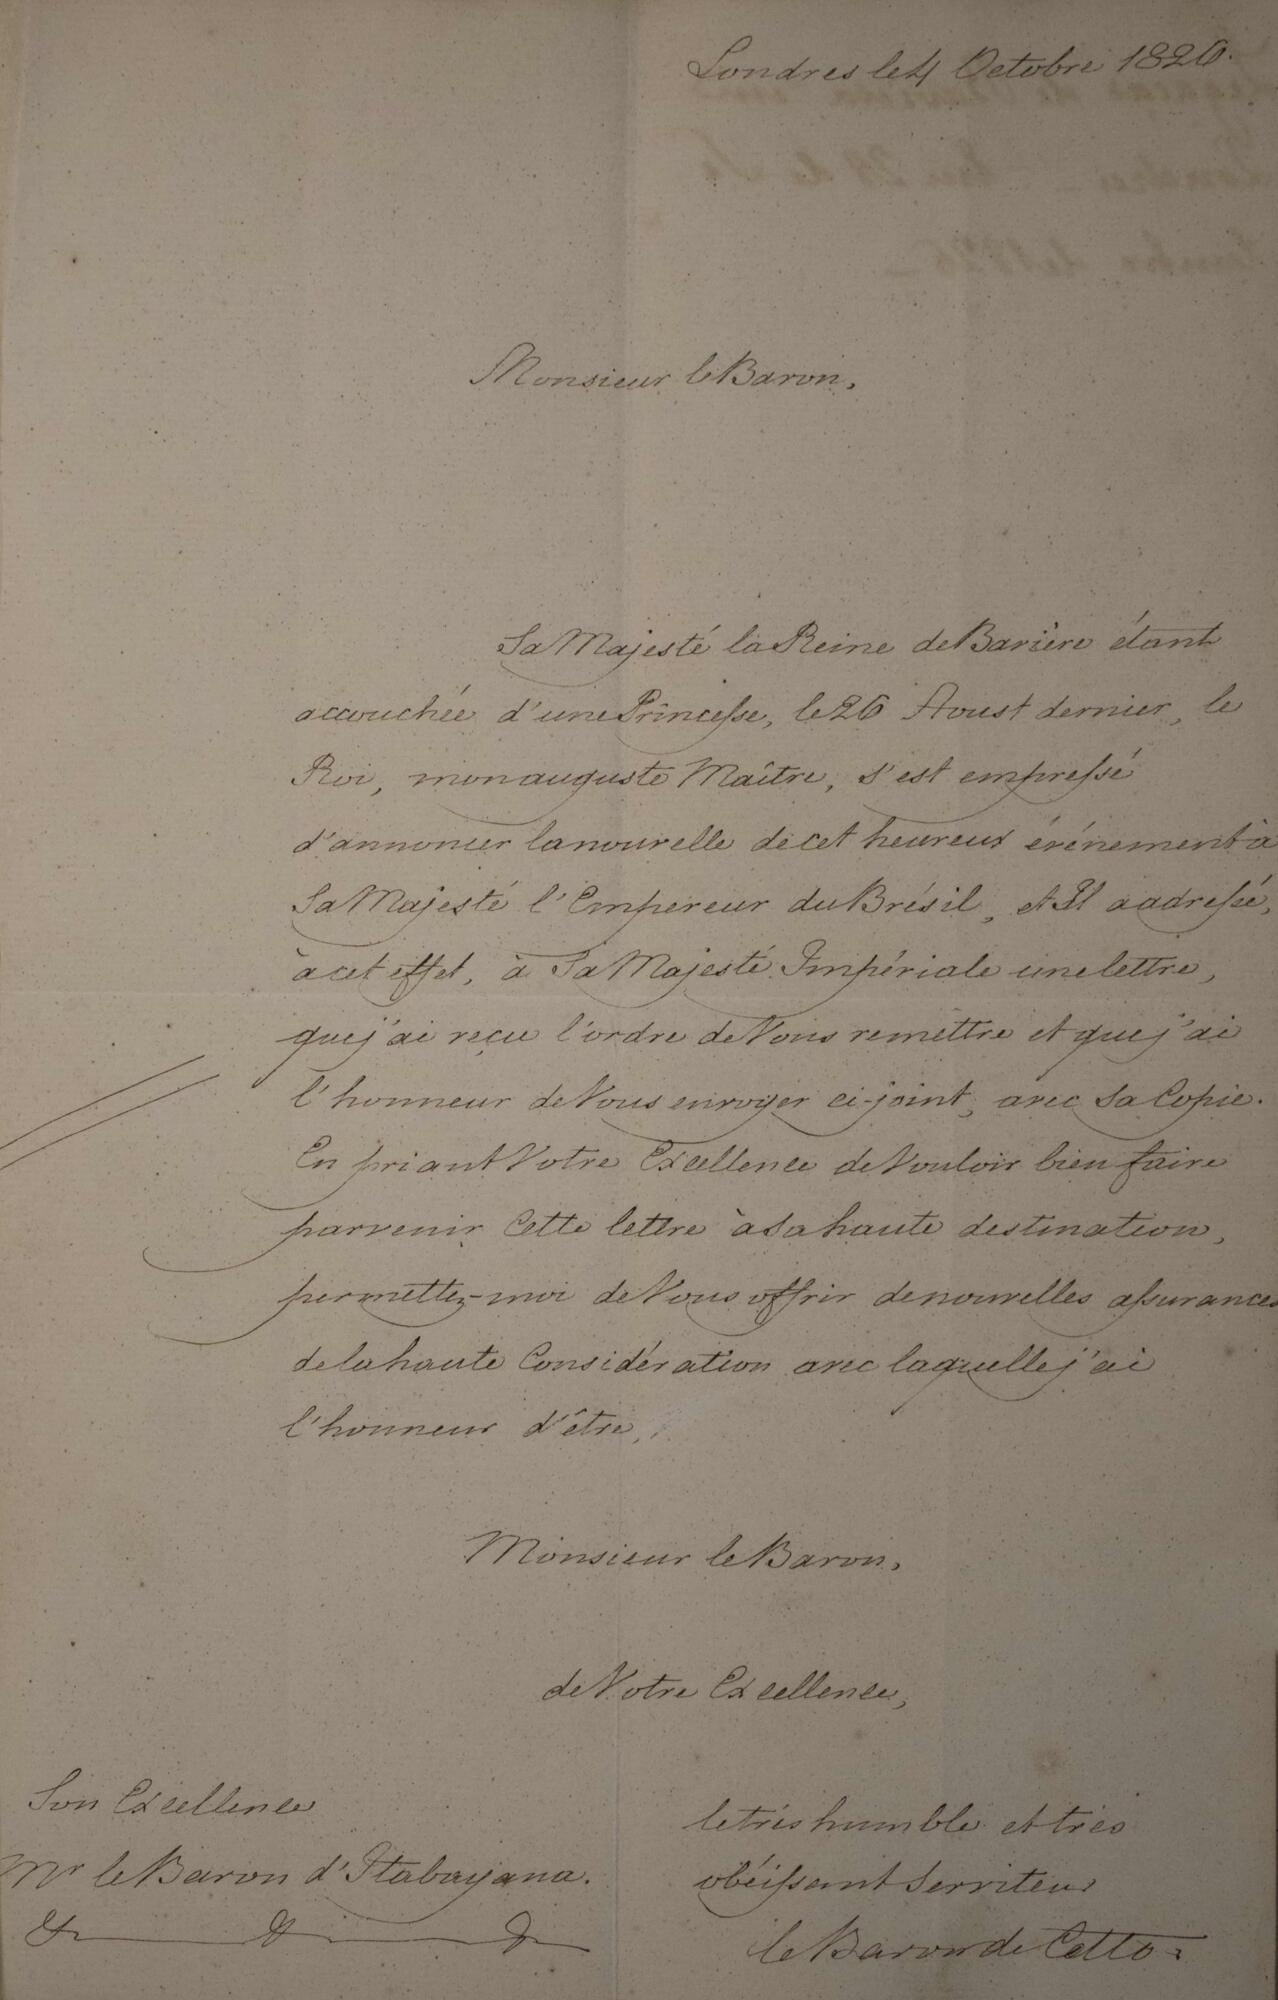 Londres le 4 Octobre 1826.
Monsieur le Baron,
Sa Majesté la Reine de Bavière étant
accouchée d'une Princesse, le 26 Aoust dernier, le
Roi, mon auguste Maître, s'est empressé
d'annoncer la nouvelle de cet heureux événement à
Sa Majesté l'Empereur du Brésil, et Il a adressé,
à cet effet, à Sa Majesté Impériale une lettre,
que j'ai reçu l'ordre de Vous remettre et que j'ai
l'honneur de Vous envoyer ci-joint, avec Sa Copie.
En priant Votre Excellence de Vouloir bien faire
parvenir Cette lettre à Sa haute destination,
permettez-moi de Vous offrir de nouvelles assurances
de la haute Considération avec laquelle j'ai
l'honneur d'être,
Monsieur le Baron,
de Votre Excellence,
Son Excellence
Mr le Baron d'Itabayana.
le très humble et très
obéissant Serviteur
le Baron de Cetto.